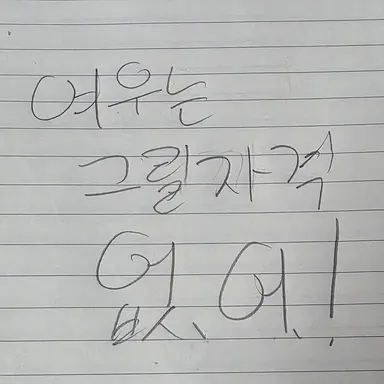 여우는
그릴자격
없어!